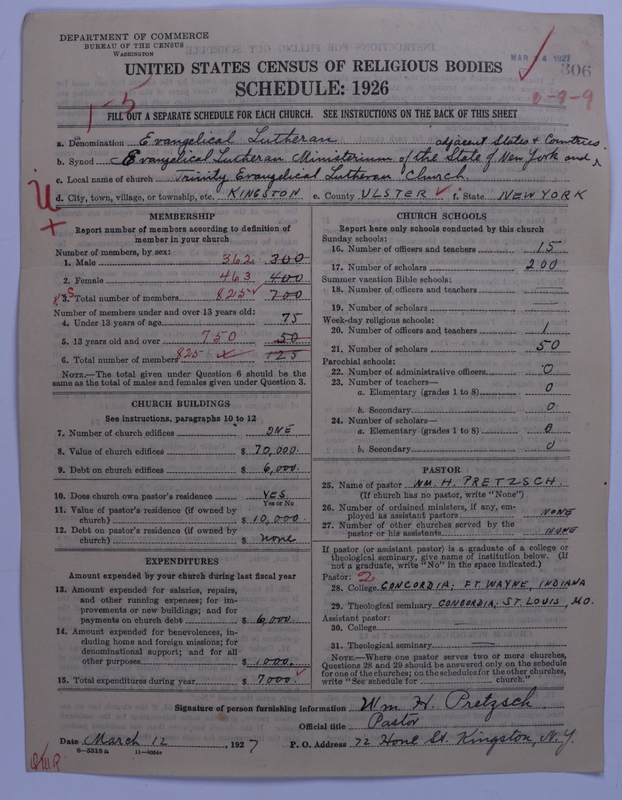 DEPARTMENT OF COMMERCE
BUREAU OF THE CENSUS
WASHINGTON
MAR 14 1927
306
UNITED STATES CENSUS OF RELIGIOUS BODIES
SCHEDULE: 1926
1-5
9-9
FILL OUT A SEPARATE SCHEDULE FOR EACH CHURCH. SEE INSTRUCTIONS ON THE BACK OF THIS SHEET
a. Denomination Evangelical Lutheran
adjacent States & Countries.
b. Synod Evangelical Lutheran Ministerium of the State of New York and
c. Local name of church Trinity Evangelical Lutheran Church.
d. City, town, village, or township, etc. KINGSTON e. County ULSTER f. State NEW YORK
MEMBERSHIP
Report number of members according to definition of
member in your church
Number of members, by sex:
1. Male 362 300
2. Female 463 400
3. Total number of members 825 700
Number of members under and over 13 years old:
4. Under 13 years of age 75
5. 13 years old and over 750 50
6. Total number of members 825 125
NOTE.—The total given under Question 6 should be
same as the total of males and females given under Question 3.
CHURCH BUILDINGS
See instructions, paragraphs 10 to 12
7. Number of church edifices ONE
8. Value of church edifices $ 70,000.
9. Debt on church edifices $ 6,000.
10. Does church own pastor's residence YES
Yes or No
11. Value of pastor's residence (if owned by
church) $ 10,000.
12. Debt on pastor's residence (if owned by
church) $ none
EXPENDITURES
Amount expended by your church during last fiscal year
13. Amount expended for salaries, repairs,
and other running expenses; for im-
provements or new buildings; and for
payments on church debt $ 6,000.
14. Amount expended for benevolences, in-
cluding home and foreign missions; for
denominational support; and for all
other purposes 1000.
15. Total expenditures during year $ 7000.
CHURCH SCHOOLS
Report here only schools conducted by this church
Sunday schools:
16. Number of officers and teachers 15
17. Number of scholars 200
Summer vacation Bible schools:
18. Number of officers and teachers —
19. Number of scholars —
Week-day religious schools:
20. Number of officers and teachers 1
21. Number of scholars 50
Parochial schools:
22. Number of administrative officers 0
23. Number of teachers—
a. Elementary (grades 1 to 8) 0
b. Secondary 0
24. Number of scholars—
a. Elementary (grades 1 to 8) 0
b. Secondary 0
PASTOR
25. Name of pastor WM. H. PRETZSCH.
(If church has no pastor, write "None")
26. Number of ordained ministers, if any, em-
ployed as assistant pastors NONE
27. Number of other churches served by the
pastor or his assistants NONE
If pastor (or assistant pastor) is a graduate of a college or
theological seminary, give name of institution below. (If
not a graduate, write "No" in the space indicated.)
Pastor: 2
28. College CONCORDIA; FT. WAYNE, INDIANA
29. Theological seminary CONCORDIA; ST. LOUIS, MO.
Assistant pastor:
30. College
31. Theological seminary —
NOTE.—Where one pastor serves two or more churches,
Questions 28 and 29 should be answered only on the schedule
for one of the churches; on the schedules for the other churches,
write "See schedule for church."
Signature of person furnishing information Wm H. Pretzsch
Official title Pastor
Date March 12, 1927 P. O. Address 72 Hone St. Kingston, N.Y.
8-5518a 11-9054